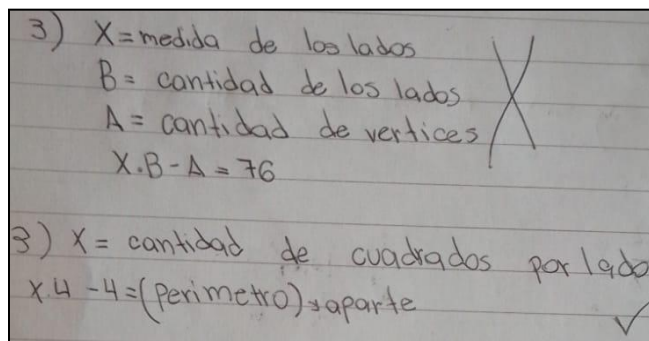 3) X = medida de los lados
B = cantidad de los lados
A = cantidad de vertices
X.B - A = 76
3) X = cantidad de cuadrados por lado
X.4 - 4 = (perimetro) aparte